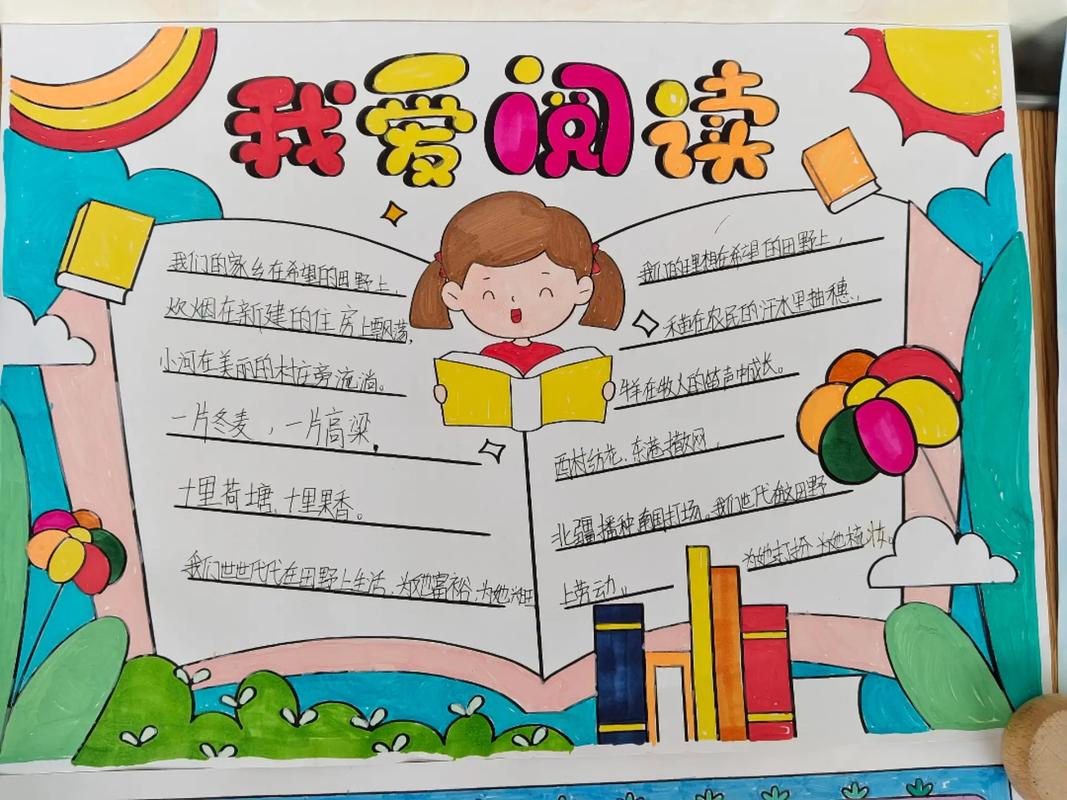 我爱阅读
我们的家乡在希望的田野上,
炊烟在新建的住房上飘荡,
小河在美丽的村庄旁流淌。
一片冬麦,一片高粱,
十里荷塘,十里果香。
我们世世代代在田野上生活,为她富裕,为她兴旺
我们的理想在希望的田野上,
禾苗在农民的汗水里抽穗,
牛羊在牧人的笛声中成长。
西村纺花,东港撒网,
北疆播种南国打场,我们世代在田野
上劳动。
为她打扮 为她梳妆。